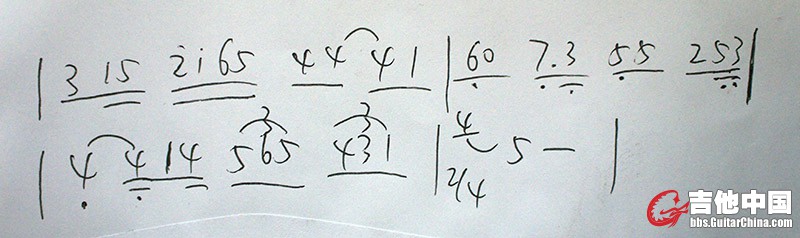 | 3 15 2165 44 41 | 60 7.3 55 253 |
| 4 4 14 565 3 431 3 | 4 5 — | 2/4
吉他中国
bbs.GuitarChina.com